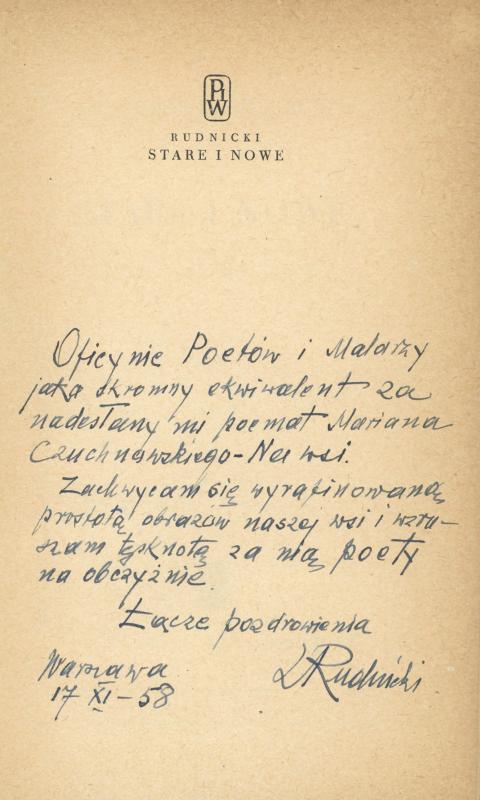 PIW
RUDNICKI
STARE I NOWE
Oficynie Poetów i Malarzy
jako skromny ekwiwalent za
nadesłany mi poemat Mariana
Czuchnowskiego - Na wsi.
Zachwycam się wyrafinowaną
prostotą obrazów naszej wsi i wzru-
szam tęsknotą za nią poety
na obczyźnie.
Łącze pozdrowienia
Warszawa
17 XI - 58
LRudnicki